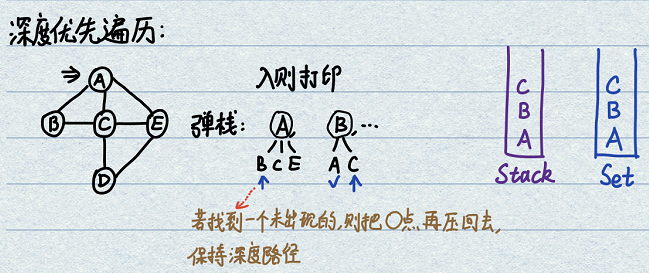 深度优先遍历:
⇒ A
B C E
D
入则打印
弹栈: A B ,...
B C E A C
若找到一个未出现的,则把○点再压回去,
保持深度路径
C
B
A
Stack
C
B
A
Set